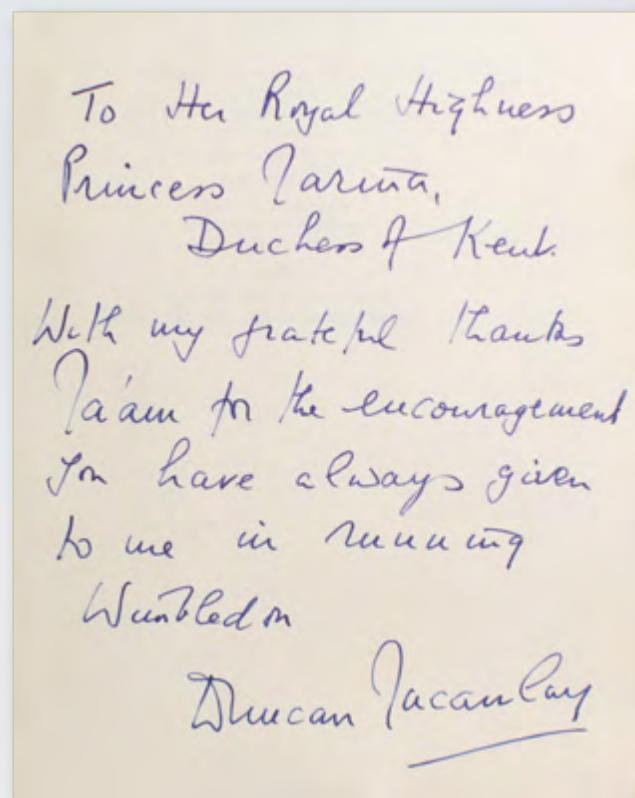 To Her Royal Highness
Princess Marina,
Duchess of Kent.
With my grateful thanks
Ma'am for the encouragement
you have always given
to me in running
Wimbledon
Duncan Macaulay